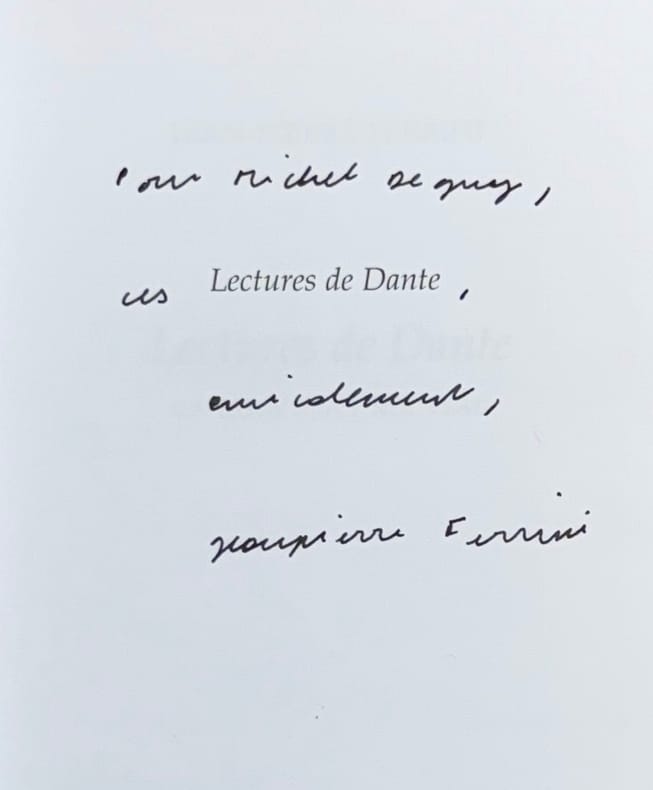 Pour Michel Deguy,
ces Lectures de Dante,
amicalement,
Jeanpierre Ferrini